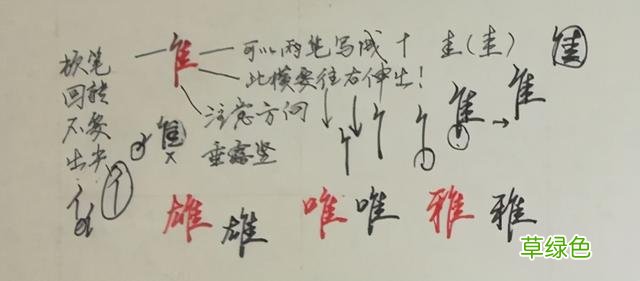 顿笔
回转
不要
出尖
隹
可以两笔写成 十 圭(圭) 隹
此横要往右伸出!
注意方向
垂露竖
隹
隹→隹
雄 雄 唯 唯 雅 雅
草绿色